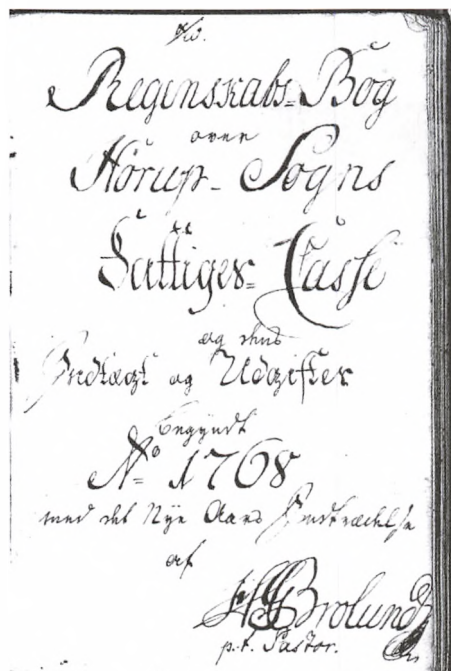 Regenskabs-Bog
over
Hörup-Sogns
Fattiges-Casse
og dens
Indtægt og Udgifter
begyndt
No 1768
med det Nye Aars Indtrædelse
af
Brolund
p.t. Pastor.